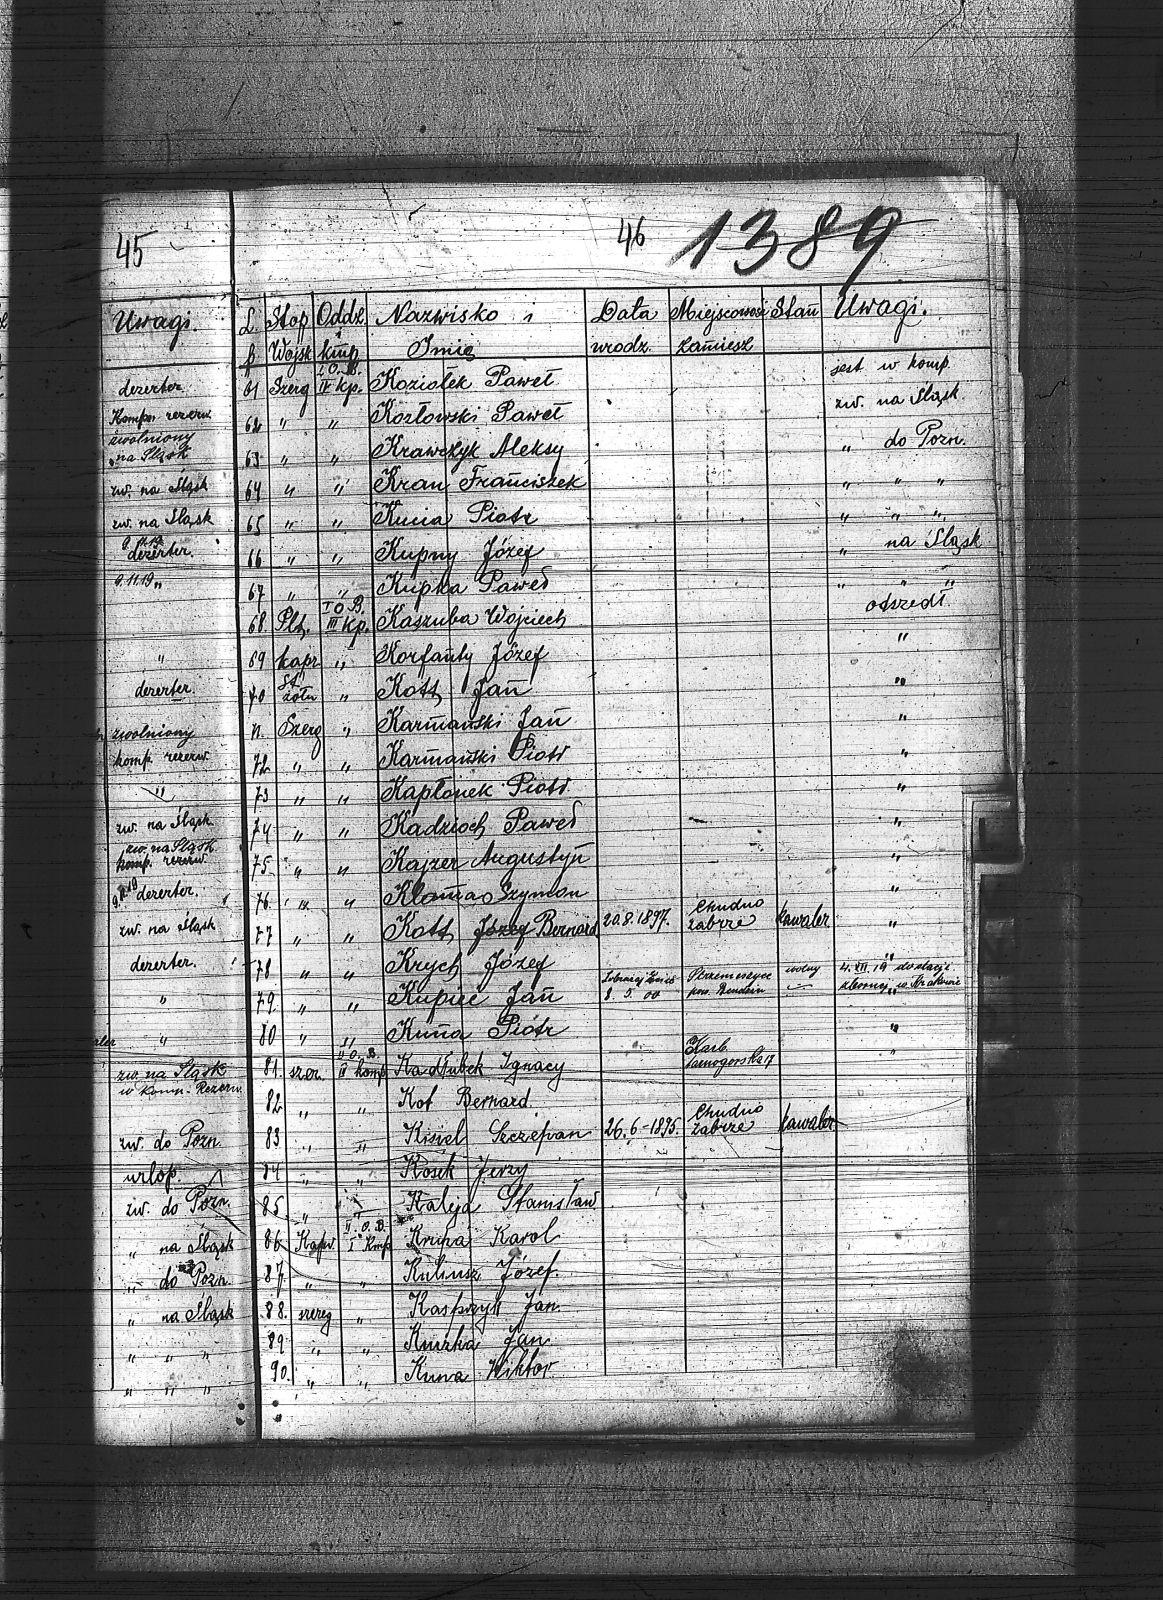 45
46
1389
Uwagi.
dezerter.
Komp. rezerw.
zwolniony
na Śląsk
zw. na Śląsk
zw. na Śląsk
9.11.19
dezerter.
9.11.19 "
"
dezerter.
zwolniony
komp. rezerw.
"
zw. na Śląsk
zw. na Śląsk
komp. rezerw.
dezerter.
zw. na Śląsk
dezerter.
"
"
zw. na Śląsk
w Komp. Rezerw.
zw. do Pozn.
urlop.
zw. do Pozn.
" na Śląsk
" do Pozn.
" na Śląsk
" " "
" " "
L. Stop Oddz. Nazwisko i Data Miejscowość Stan Uwagi.
p. Wojsk kmp Imię urodz. zamiesz
61 Szerg I O.B. IV Kp. Koziołek Paweł jest w komp.
62 " " Kozłowski Paweł zw. na Śląsk
63 " " Krawczyk Aleksy " do Pozn.
64 " " Kran Franciszek " " "
65 " " Kucia Piotr " " "
66 " " Kupny Józef " na Śląsk
67 " " Kupka Paweł " " "
68. Plt. I O.B. III Kp. Kaszuba Wojciech odszedł
69 kapr " Korfanty Józef "
70 St. żołn " Kott Jan "
71. Szerg " Karmański Jan "
72 " " Karmański Piotr "
73 " " Kapłonek Piotr "
74 " " Kadzioch Paweł "
75. " " Kajzer Augustyn "
76. " " Szymon "
77 " " Kott Józef Bernard 20.8.1897. Chudno Zabrze kawaler "
78 " " Krych Józef "
79. " " Kupiec Jan 8. 5. 00 pow. Bendzin wolny 4. XII. 19 do stacji zbornej w Krakowie
80 " " Kuna Piotr "
81. szer. II O.B. III komp Kadłubek Ignacy Karb Tarnogorska 17 "
82 " " Kot Bernard
83 " " Kisiel Szczepan 26. 6 - 1895. Chudno Zabrze kawaler
84 " " Kosek Jerzy
85. " " Kaleja Stanisław
86 Kapr. II. O.B. I Kmp Kruna Karol
87. " " Kulinsz Józef.
88. szereg " Kasprzyk Jan.
89 " " Jan
90. " " Kuna Wiktor